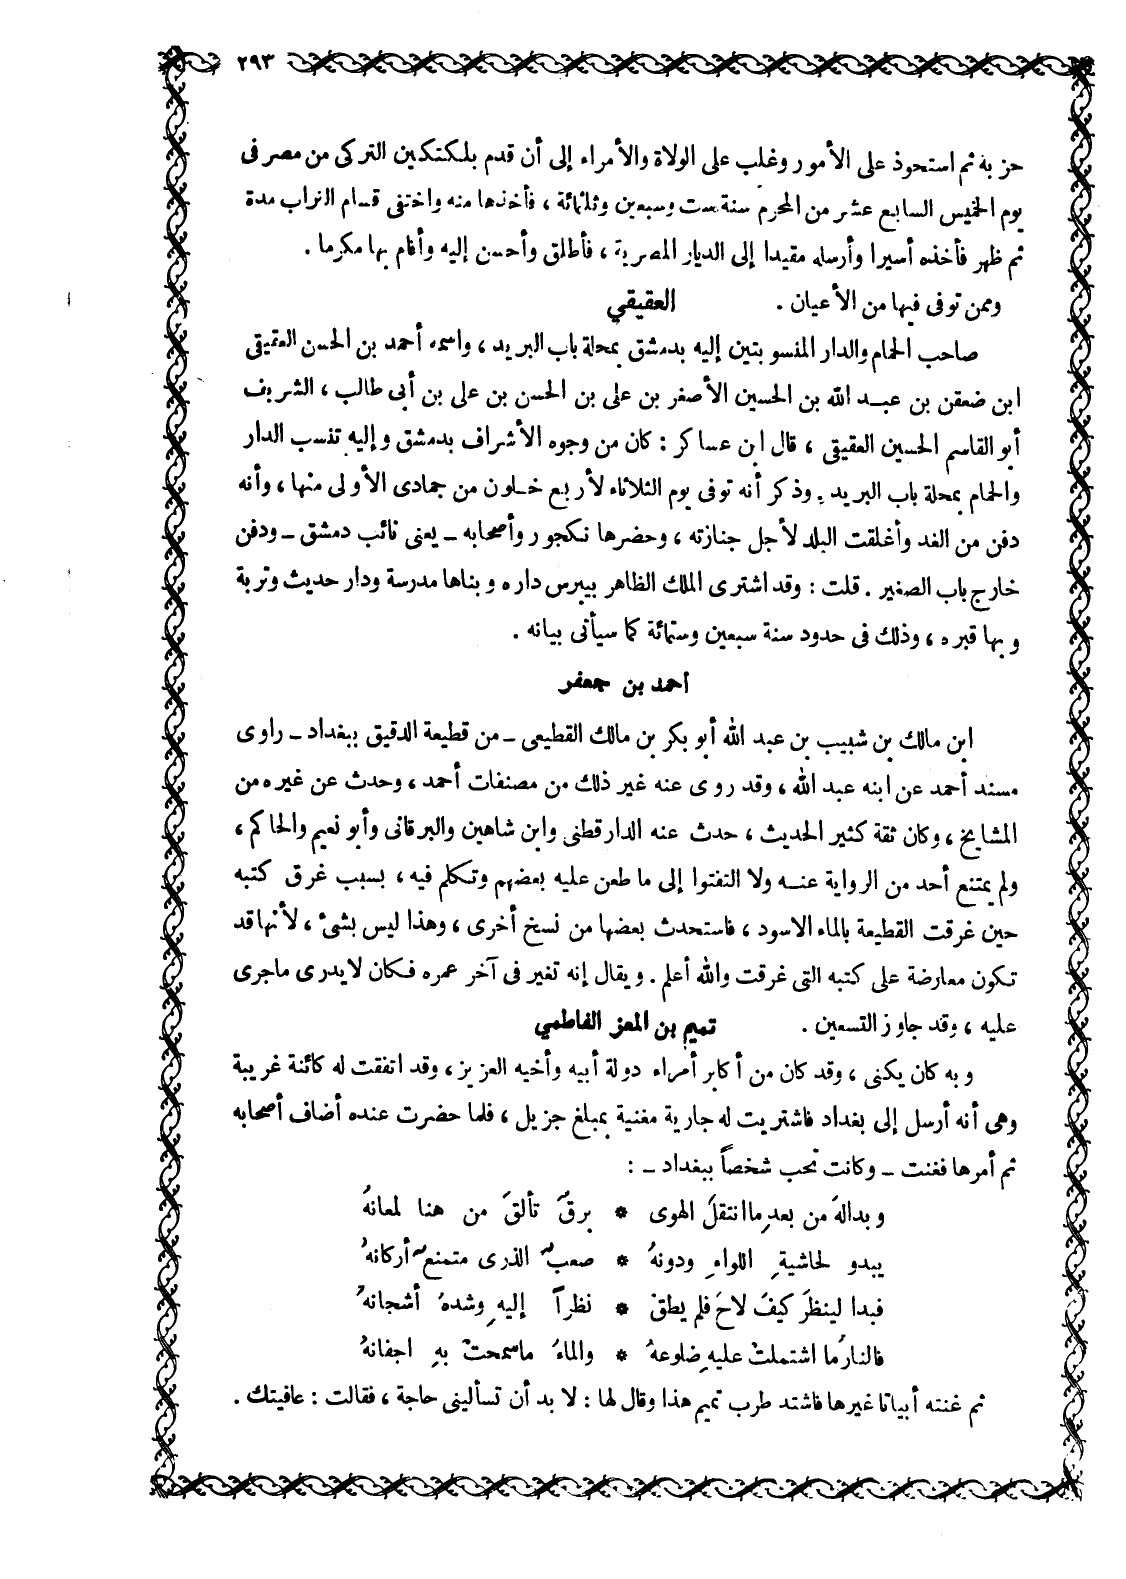 ٢٩٣
حزبه ثم استحوذ على الأمور وغلب على الولاة والأمراء إلى أن قدم بلكتكين التركى من مصر فى
يوم الخميس السابع عشر من المحرم سنة ست وسبعين وثلثمائة ، فأخذها منه واختفى قسام التراب مدة
ثم ظهر فأخذه أسيرا وأرسله مقيدا إلى الديار المصرية ، فأطلق وأحسن إليه وأقام بها مكرما .
وممن توفى فيها من الأعيان . العقيقي
صاحب الحمام والدار المنسوبتين إليه بدمشق بمحلة باب البريد ، واسمه أحمد بن الحسن العقيقى
ابن ضعقن بن عبد الله بن الحسين الأصغر بن على بن الحسن بن على بن أبى طالب ، الشريف
أبو القاسم الحسين العقيقى ، قال ابن عساكر : كان من وجوه الأشراف بدمشق وإليه تنسب الدار
والحمام بمحلة باب البريد . وذكر أنه توفى يوم الثلاثاء لأربع خلون من جمادى الأولى منها ، وأنه
دفن من الغد وأغلقت البلد لأجل جنازته ، وحضرها نكجور وأصحابه ــ يعنى نائب دمشق ــ ودفن
خارج باب الصغير . قلت : وقد اشترى الملك الظاهر بيبرس داره وبناها مدرسة ودار حديث وتربة
وبها قبره ، وذلك فى حدود سنة سبعين وستمائة كما سيأتى بيانه .
أحمد بن جعفر
ابن مالك بن شبيب بن عبد الله أبو بكر بن مالك القطيعى ــ من قطيعة الدقيق ببغداد ــ راوى
مسند أحمد عن ابنه عبد الله ، وقد روى عنه غير ذلك من مصنفات أحمد ، وحدث عن غيره من
المشايخ ، وكان ثقة كثير الحديث ، حدث عنه الدارقطنى وابن شاهين والبرقانى وأبو نعيم والحاكم ،
ولم يمتنع أحد من الرواية عنه ولا التفتوا إلى ما طعن عليه بعضهم وتكلم فيه ، بسبب غرق كتبه
حين غرقت القطيعة بالماء الاسود ، فاستحدث بعضها من نسخ أخرى ، وهذا ليس بشئ ، لأنها قد
تكون معارضة على كتبه التى غرقت والله أعلم . ويقال إنه تغير فى آخر عمره فكان لا يدرى ماجرى
عليه ، وقد جاوز التسعين . تميم بن المعز الفاطمي
وبه كان يكنى ، وقد كان من أكابر أمراء دولة أبيه وأخيه العزيز ، وقد اتفقت له كائنة غريبة
وهى أنه أرسل إلى بغداد فاشتريت له جارية مغنية بمبلغ جزيل ، فلما حضرت عنده أضاف أصحابه
ثم أمرها فغنت ــ وكانت تحب شخصاً ببغداد ــ :
وبدالهَ من بعدِ ماانتقلَ الهوى * برقٌ تألقَ من هنا لمعانهُ
يبدو لحاشيةِ اللواءِ ودونهُ * صعبٌ الذرى متمنعٌ أركانهُ
فبدا لينظرَ كيفَ لاحَ فلم يطقْ * نظراً إليهِ وشدهُ أشجانهُ
فالنارُ ما اشتملتْ عليهِ ضلوعهُ * والماءُ ماسمحتْ بهِ اجفانهُ
ثم غنته أبياتا غيرها فاشتد طرب تميم هذا وقال لها : لا بد أن تسألينى حاجة ، فقالت : عافيتك .